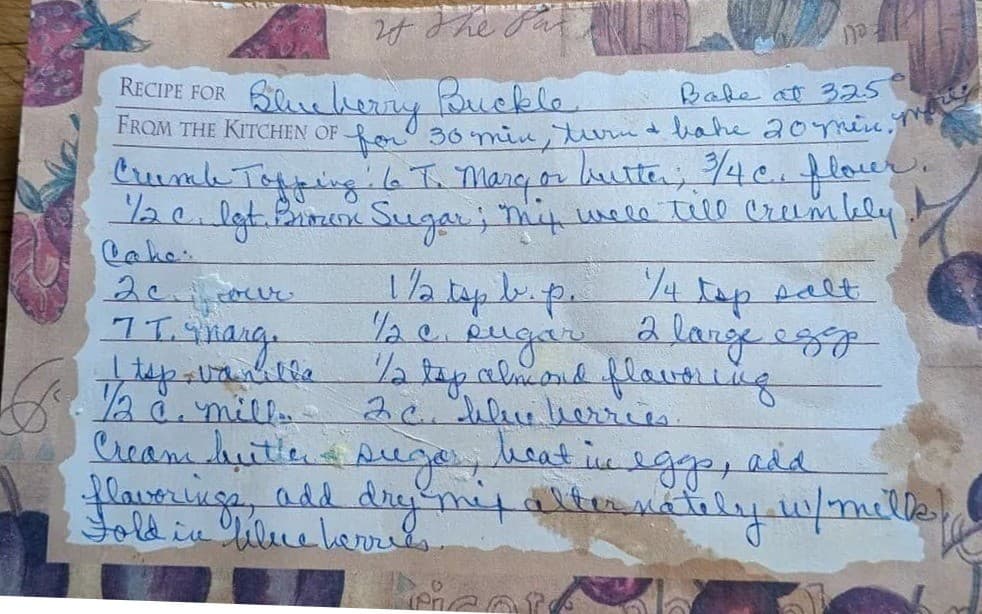 RECIPE FOR Blueberry Buckle Bake at 325°
FROM THE KITCHEN OF for 30 min, turn & bake 20 min. more
Crumb Topping: 6 T. Marg or butter; 3/4 c. flour.
1/2 c. lgt. Brown Sugar; mix well till crumbly.
Cake:
2 c. flour 1 1/2 tsp b.p. 1/4 tsp salt
7 T. marg. 1/2 c. sugar 2 large eggs
1 tsp. vanilla 1/2 tsp almond flavoring
1/2 c. milk 2 c. blueberries.
Cream butter & sugar, beat in eggs, add
flavorings, add dry mix alternately w/ milk
Fold in blueberries.